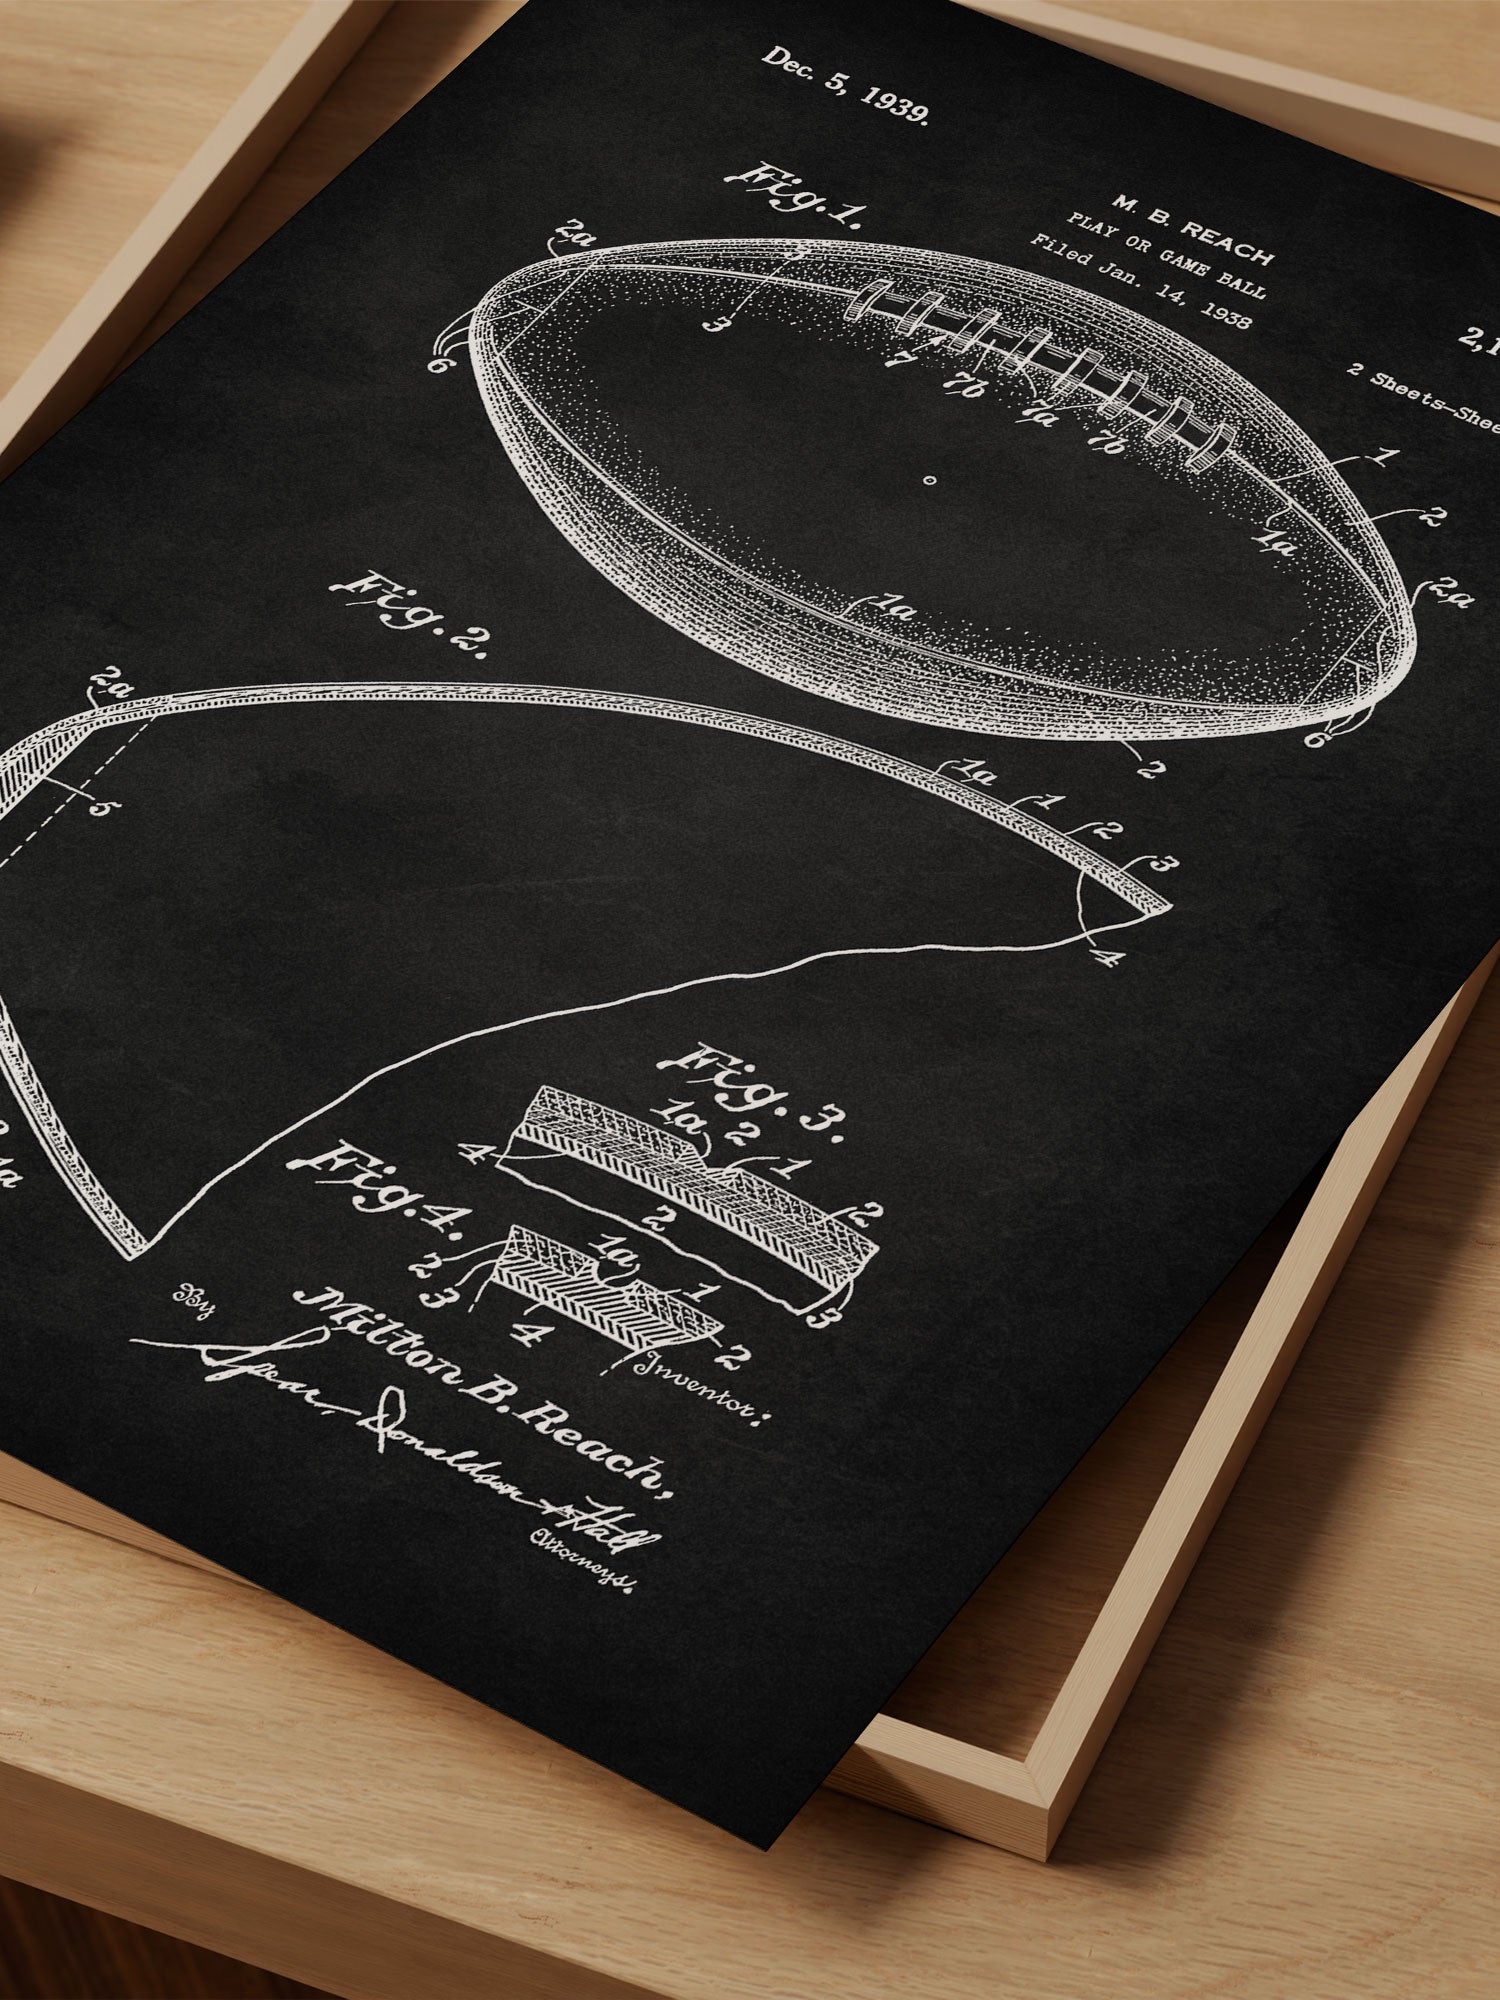 Dec. 5, 1939.
M. B. REACH
PLAY OR GAME BALL
Filed Jan. 14, 1938
2,1
2 Sheets-Shee
Fig.1.
2a
3
3
6
7
7b
7a
7b
1
2
1a
2a
1a
6
2
Fig.2.
2a
5
1a
1
2
3
4
1a
Fig.3.
1a
2
1
4
2
3
Fig.4.
2
1a
1
2
3
4
2
Inventor:
Milton B. Reach,
By
Spear, Donaldson & Hall
Attorneys.